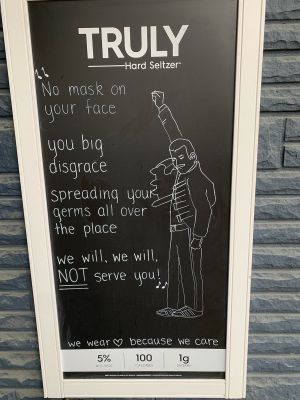 TRULY
Hard Seltzer
No mask on
your face
you big
disgrace
spreading your
germs all over
the place
we will, we will,
NOT serve you!
we wear ♡ because we care
5% 100 1g